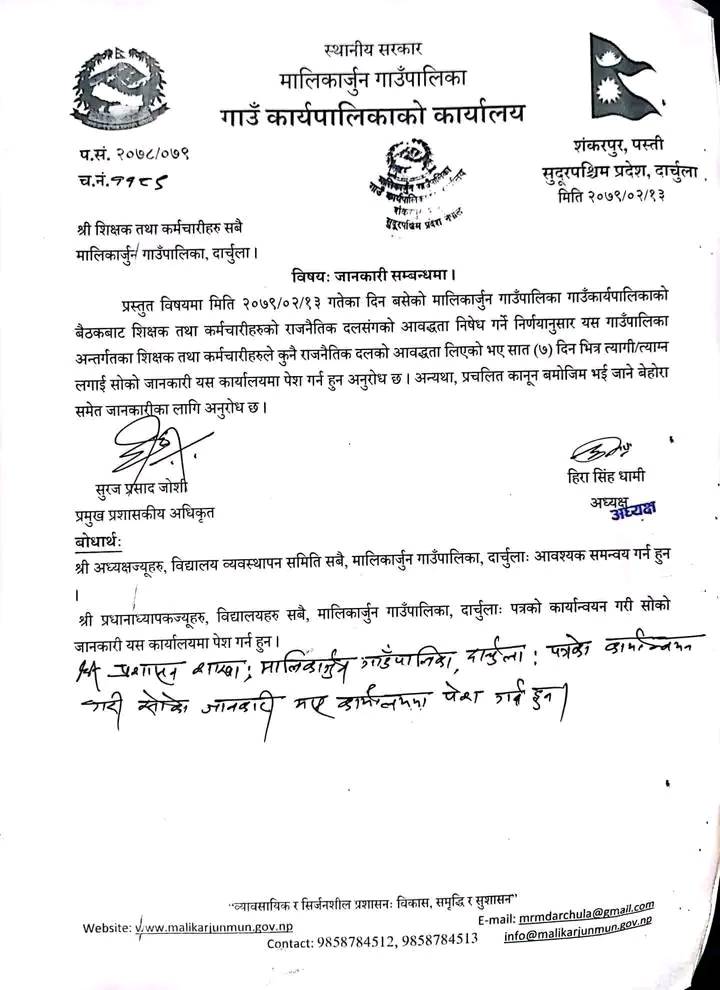 स्थानीय सरकार
मालिकार्जुन गाउँपालिका
गाउँ कार्यपालिकाको कार्यालय
प.सं. २०७८/०७९
च.नं. ११८६
शंकरपुर, पस्ती
सुदूरपश्चिम प्रदेश, दार्चुला
मिति २०७९/०२/१३
मालिकार्जुन गाउँपालिका
गाउँ कार्यपालिकाको कार्यालय
सुदूरपश्चिम प्रदेश नेपाल
श्री शिक्षक तथा कर्मचारीहरु सबै
मालिकार्जुन गाउँपालिका, दार्चुला ।
विषय: जानकारी सम्बन्धमा ।
प्रस्तुत विषयमा मिति २०७९/०२/१३ गतेका दिन बसेको मालिकार्जुन गाउँपालिका गाउँकार्यपालिकाको
बैठकबाट शिक्षक तथा कर्मचारीहरुको राजनैतिक दलसंगको आवद्धता निषेध गर्ने निर्णयानुसार यस गाउँपालिका
अन्तर्गतका शिक्षक तथा कर्मचारीहरुले कुनै राजनैतिक दलको आवद्धता लिएको भए सात (७) दिन भित्र त्यागी/त्याग्न
लगाई सोको जानकारी यस कार्यालयमा पेश गर्न हुन अनुरोध छ । अन्यथा, प्रचलित कानून बमोजिम भई जाने बेहोरा
समेत जानकारीका लागि अनुरोध छ ।
सुरज प्रसाद जोशी
प्रमुख प्रशासकीय अधिकृत
हिरा सिंह धामी
अध्यक्ष
अध्यक्ष
बोधार्थ:
श्री अध्यक्षज्यूहरु, विद्यालय व्यवस्थापन समिति सबै, मालिकार्जुन गाउँपालिका, दार्चुला: आवश्यक समन्वय गर्न हुन
।
श्री प्रधानाध्यापकज्यूहरु, विद्यालयहरु सबै, मालिकार्जुन गाउँपालिका, दार्चुला: पत्रको कार्यान्वयन गरी सोको
जानकारी यस कार्यालयमा पेश गर्न हुन ।
श्री प्रशासन शाखा, मालिकार्जुन गाउँपालिका, दार्चुला: पत्रको कार्यान्वयन
गरी सोको जानकारी यस कार्यालयमा पेश गर्न हुन ।
"व्यावसायिक र सिर्जनशील प्रशासन: विकास, समृद्धि र सुशासन"
Website: www.malikarjunmun.gov.np
E-mail: mrmdarchula@gmail.com
Contact: 9858784512, 9858784513
info@malikarjunmun.gov.np